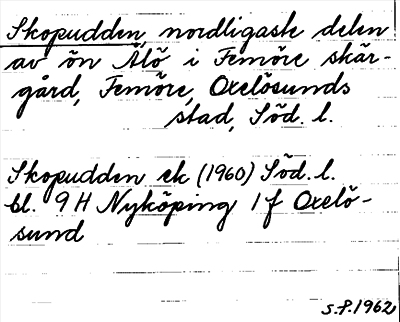 Skopudden, nordligaste delen
av ön Älö i Femöre skär-
gård, Femöre, Oxelösunds
stad, Söd. l.
Skopudden ek (1960) Söd. l.
bl. 9 H Nyköping 1 f Oxelö-
sund
S.P. 1962